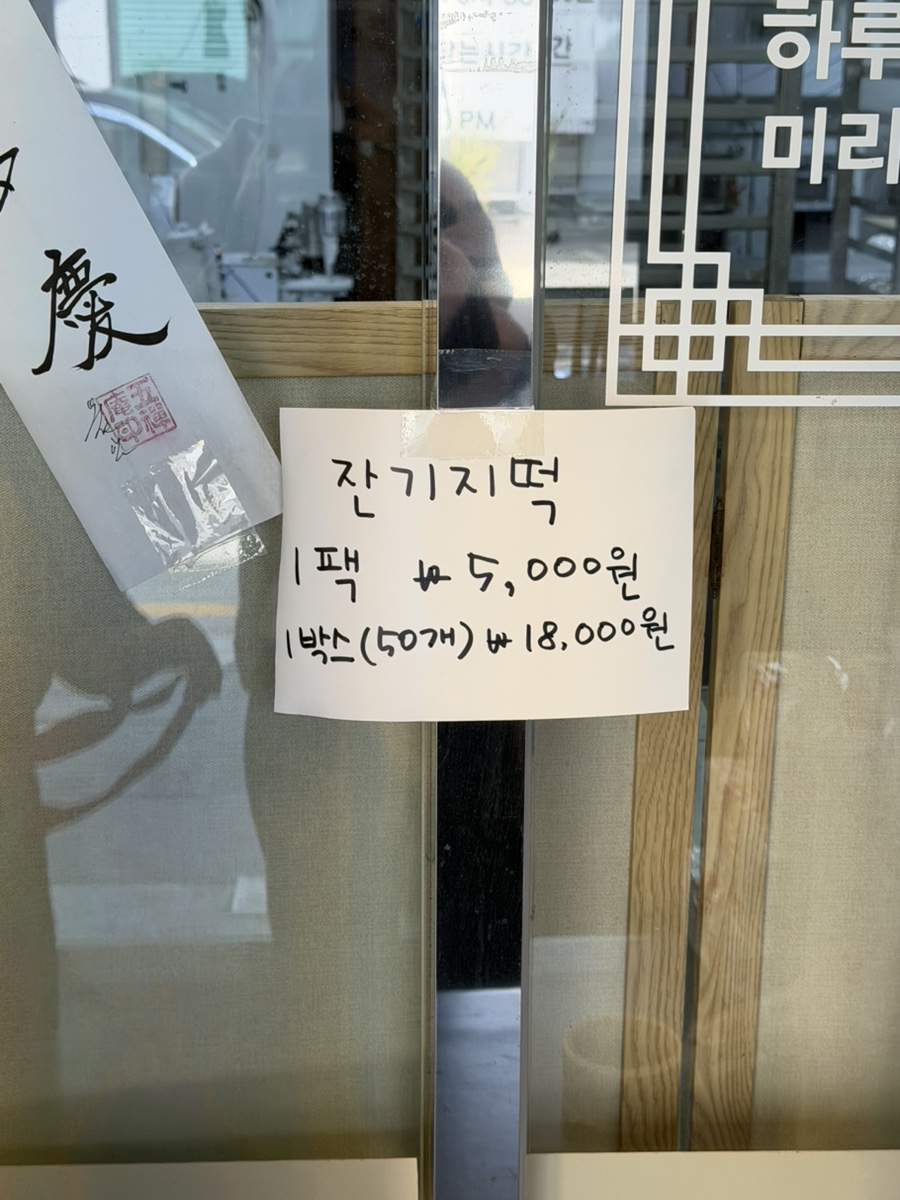 하루
미리
는시간
PM
慶
잔기지떡
1팩 ₩ 5,000원
1박스(50개) ₩ 18,000원